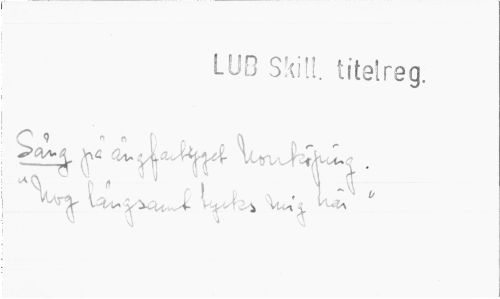 LUB Skill. titelreg.
Sång på ångfartyget Norrköping.
"Nog långsamt tycks mig här"